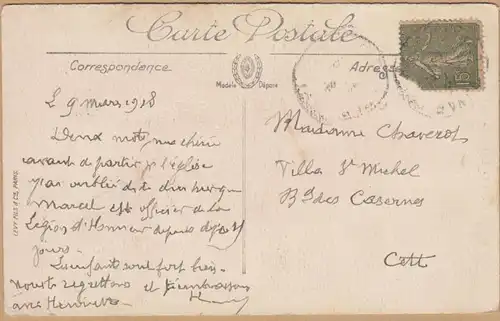 Carte Postale
Correspondence
Modèle Déposé
Adresse
15
Le 9 mars 1918
Deux mots, ma chérie
avant de partir à l'église
j'ai oublié de te dire hier que
Marcel est officier de la
Légion d'Honneur depuis 15
jours.
Les enfants sont fort bien
nous te regrettons et t'embrassons
avec Henriette
Madame Chaverot
Villa St Michel
Bd des Casernes
Cette
LEVY FILS & Cie, PARIS